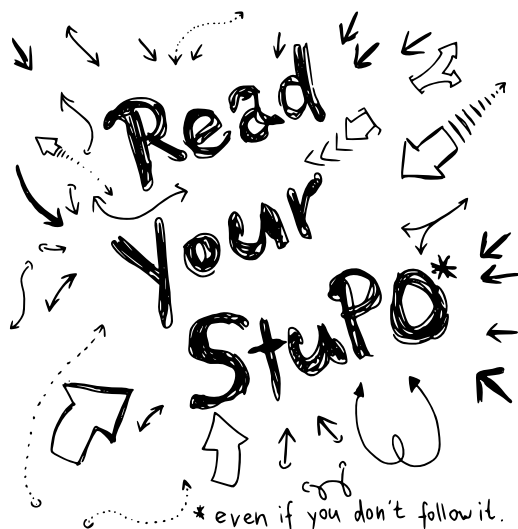 Read
Your
StuPO*
* even if you don't follow it.